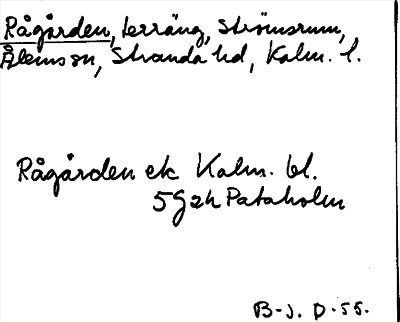 Rågården, terräng, Strömsrum,
Ålems sn, Stranda hd, Kalm. l.
Rågården ek Kalm. bl.
5G2h Pataholm
B-J. D-55.